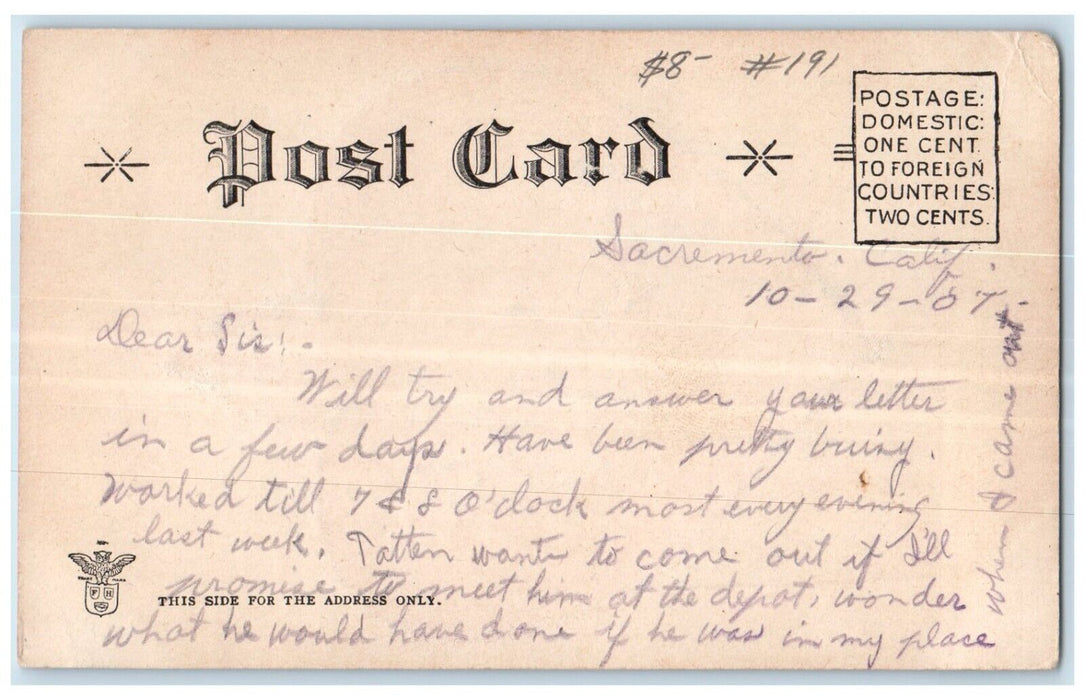 $8- #191
Post Card
POSTAGE:
DOMESTIC:
ONE CENT.
TO FOREIGN
COUNTRIES:
TWO CENTS.
Sacremento. Calif.
10-29-07-
Dear Sis:-
Will try and answer your letter
in a few days. Have been pretty buisy.
Worked till 7 & 8 O'clock most every evening
last week. Tatten wants to come out if I'll
promise to meet him at the depot, wonder
THIS SIDE FOR THE ADDRESS ONLY.
what he would have done if he was in my place
when I came out.
TRADE MARK
F H